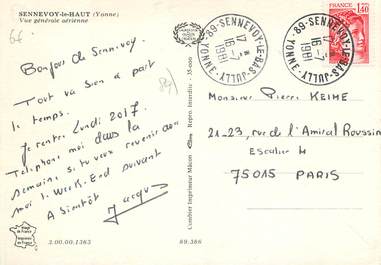 SENNEVOY-le-HAUT (Yonne)
Vue générale aérienne
Bonjour de Sennevoy.
Tout va bien à part
le temps.
Je rentre Lundi 20/7.
Téléphone moi dans la
semaine si tu veux revenir avec
moi le Week. End suivant
A bientôt
Jacques
3.00.00.1363
89.386
Combier Imprimeur Mâcon
Repro. Interdite : 35-000
89-SENNEVOY-LE-BAS-JULLY
YONNE
17 H
16-7
1981
89-SENNEVOY-LE-BAS-JULLY
YONNE
17 H
16-7
1981
FRANCE
1,40
Monsieur Pierre KEIME
21-23, rue de l'Amiral Roussin
Escalier 4
75015 PARIS